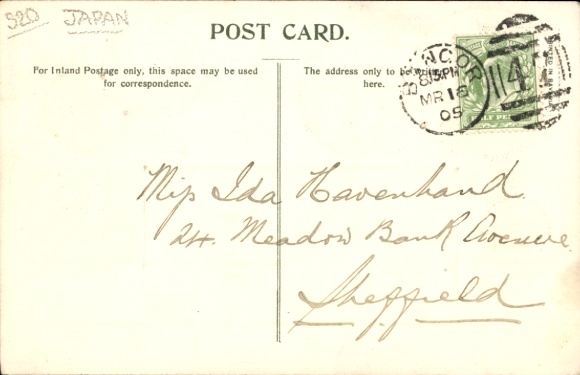 520 JAPAN
POST CARD.
For Inland Postage only, this space may be used
for correspondence.
The address only to be
here.
BANGOR
815PM
MR 18
05
114
HALF PEN
PRINTED IN BAV
Miſs Ida Havenhand
24. Meadow Bank Avenue
Sheffield